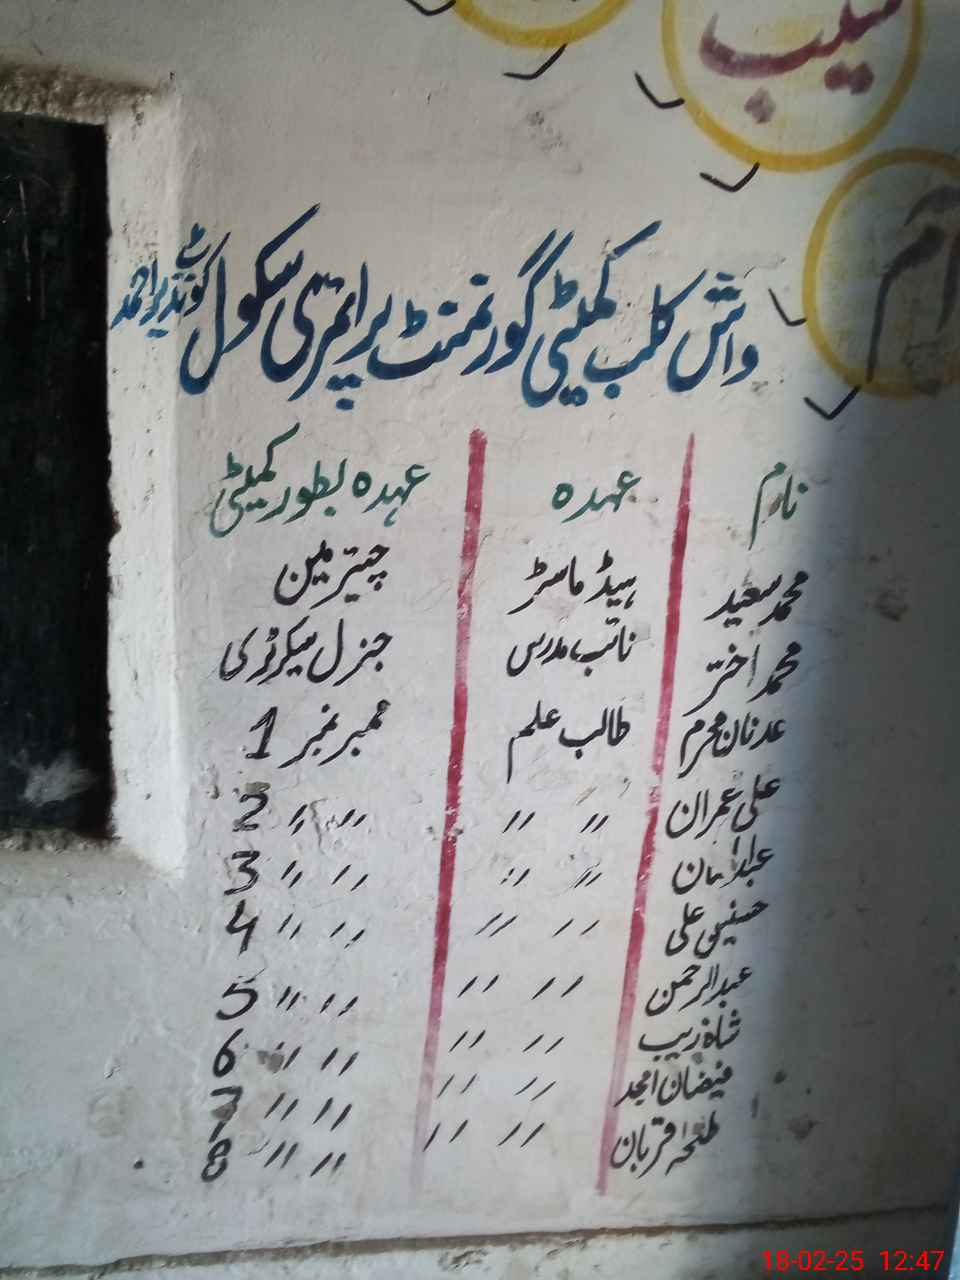 سیب
آم
واش کلب کمیٹی گورنمنٹ پرائمری سکول کوٹ نذیر احمد
نام عہدہ عہدہ بطور کمیٹی
محمد سعید ہیڈ ماسٹر چیئرمین
محمد اختر نائب مدرس جنرل سیکرٹری
عدنان محرم طالب علم ممبر نمبر 1
علی عمران 〃 〃 〃 〃 2
〃 〃 〃 〃 3
حسنین علی 〃 〃 〃 〃 4
عبدالرحمن 〃 〃 〃 〃 5
شاہ زیب 〃 〃 〃 〃 6
فیضان امجد 〃 〃 〃 〃 7
طلحہ قربان 〃 〃 〃 〃 8
18-02-25 12:47